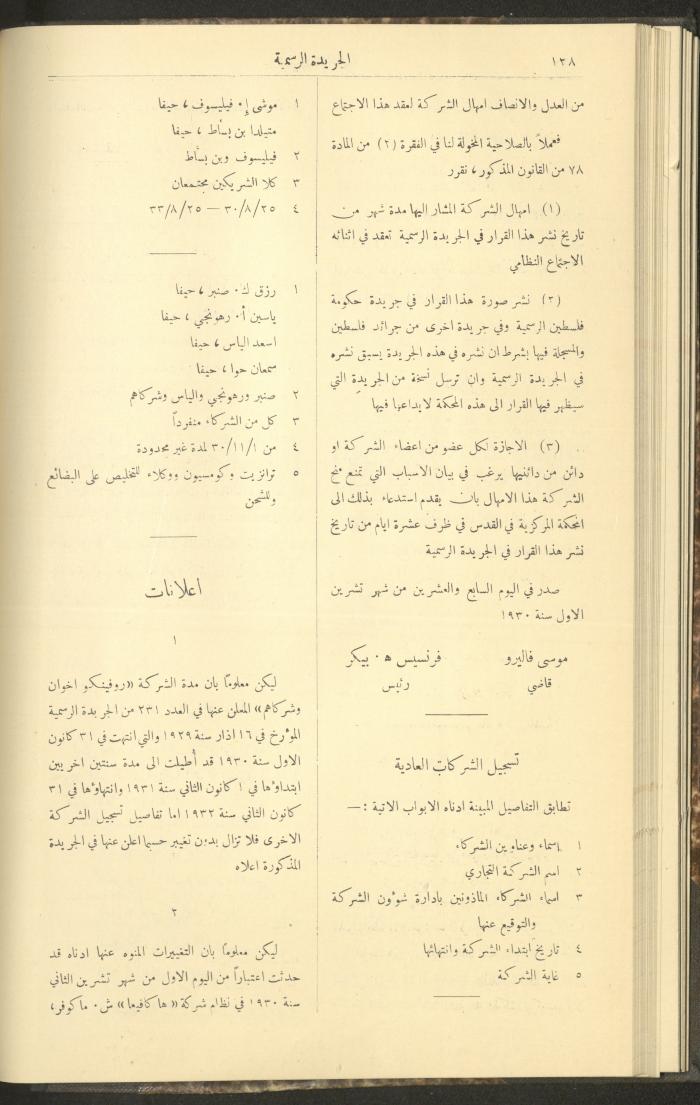 ١٢٨
الجريدة الرسمية
من العدل والانصاف امهال الشركة لعقد هذا الاجتماع
فعملاً بالصلاحية المخولة لنا في الفقرة (٢) من المادة
٧٨ من القانون المذكور، نقرر
(١) امهال الشركة المشار اليها مدة شهر من
تاريخ نشر هذا القرار في الجريدة الرسمية تعقد في اثنائه
الاجتماع النظامي
(٢) نشر صورة هذا القرار في جريدة حكومة
فلسطين الرسمية وفي جريدة اخرى من جرائد فلسطين
والمسجلة فيها بشرط ان نشره في هذه الجريدة يسبق نشره
في الجريدة الرسمية وان ترسل نسخة من الجريدة التي
سيظهر فيها القرار الى هذه المحكمة لايداعها فيها
(٣) الاجازة لكل عضو من اعضاء الشركة او
دائن من دائنيها يرغب في بيان الاسباب التي تمنع منح
الشركة هذا الامهال بان يقدم استدعاء بذلك الى
المحكمة المركزية في القدس في ظرف عشرة ايام من تاريخ
نشر هذا القرار في الجريدة الرسمية
صدر في اليوم السابع والعشرين من شهر تشرين
الاول سنة ١٩٣٠
موسى فاليرو فرنسيس ه٠ بيكر
قاضي رئيس
تسجيل الشركات العادية
تطابق التفاصيل المبينة ادناه الابواب الاتية :—
١ اسماء وعناوين الشركاء
٢ اسم الشركة التجاري
٣ اسماء الشركاء الماذونين بادارة شوؤن الشركة
والتوقيع عنها
٤ تاريخ ابتداء الشركة وانتهائها
٥ غاية الشركة
١ موشى إ٠ فيليسوف، حيفا
متيلدا بن بسأط، حيفا
٢ فيليسوف وبن بسأط
٣ كلا الشريكين مجتمعان
٤ ٣٠/٨/٢٥ — ٣٣/٨/٢٥
١ رزق ك٠ صنبر، حيفا
ياسين أ٠ رهونجي، حيفا
اسعد الياس، حيفا
سمعان حوا، حيفا
٢ صنبر ورهونجي والياس وشركاهم
٣ كل من الشركاء منفرداً
٤ من ٣٠/١١/١ لمدة غير محدودة
٥ ترانزيت وكومسيون ووكلاء للتخليص على البضائع
وللشحن
اعلانات
١
ليكن معلوماً بان مدة الشركة «روفينكو اخوان
وشركاهم» المعلن عنها في العدد ٢٣١ من الجريدة الرسمية
المؤرخ في ١٦ اذار سنة ١٩٢٩ والتي انتهت في ٣١ كانون
الاول سنة ١٩٣٠ قد أُطيلت الى مدة سنتين اخريين
ابتداؤها في ١ كانون الثاني سنة ١٩٣١ وانتهاؤها في ٣١
كانون الثاني سنة ١٩٣٢ اما تفاصيل تسجيل الشركة
الاخرى فلا تزال بدون تغيير حسبما اعلن عنها في الجريدة
المذكورة اعلاه
٢
ليكن معلوماً بان التغييرات المنوه عنها ادناه قد
حدثت اعتباراً من اليوم الاول من شهر تشرين الثاني
سنة ١٩٣٠ في نظام شركة «هاكافيما» ش٠ ماكوفر،